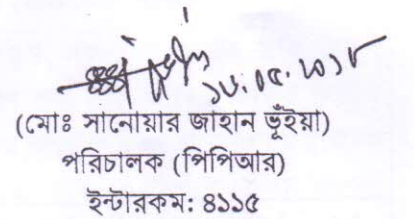 ১৮.০৫.২০১৮
(মোঃ সানোয়ার জাহান ভূঁইয়া)
পরিচালক (পিপিআর)
ইন্টারকম: ৪১১৫